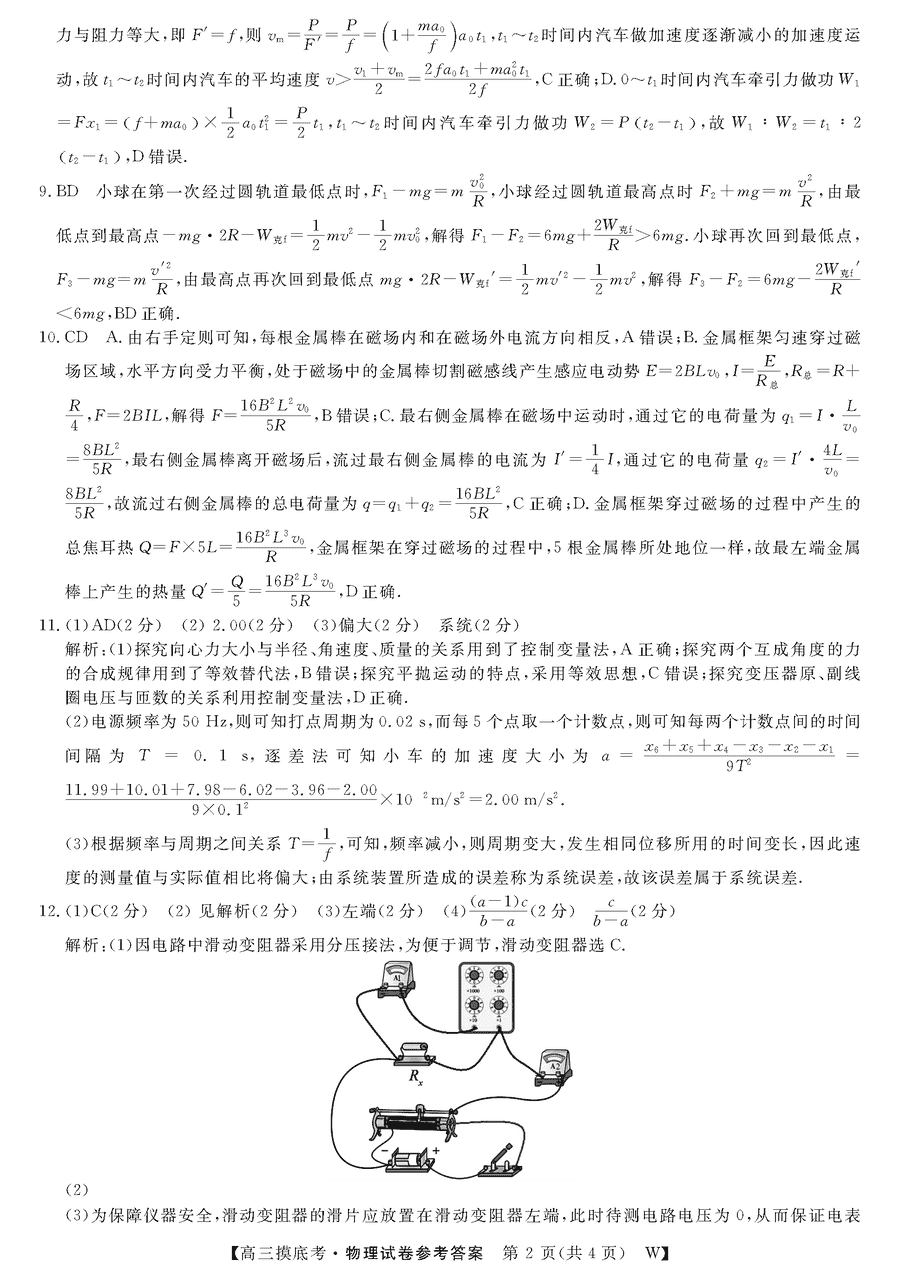 力与阻力等大,即 F′=f,则 vₘ=P/F′=P/f=(1+ma₀/f)a₀t₁,t₁~t₂时间内汽车做加速度逐渐减小的加速度运
动,故 t₁~t₂时间内汽车的平均速度 v>(v₁+vₘ)/2=(2fa₀t₁+ma₀²t₁)/2f,C 正确;D.0~t₁时间内汽车牵引力做功 W₁
=Fx₁=(f+ma₀)×1/2 a₀t₁²=P/2 t₁,t₁~t₂时间内汽车牵引力做功 W₂=P(t₂-t₁),故 W₁∶W₂=t₁∶2
(t₂-t₁),D 错误.
9.BD 小球在第一次经过圆轨道最低点时,F₁-mg=m v₀²/R,小球经过圆轨道最高点时 F₂+mg=m v²/R,由最
低点到最高点-mg·2R-W克f=1/2 mv²-1/2 mv₀²,解得 F₁-F₂=6mg+2W克f/R>6mg.小球再次回到最低点,
F₃-mg=m v′²/R,由最高点再次回到最低点 mg·2R-W克f′=1/2 mv′²-1/2 mv²,解得 F₃-F₂=6mg-2W克f′/R
<6mg,BD 正确.
10.CD A.由右手定则可知,每根金属棒在磁场内和在磁场外电流方向相反,A 错误;B.金属框架匀速穿过磁
场区域,水平方向受力平衡,处于磁场中的金属棒切割磁感线产生感应电动势 E=2BLv₀,I=E/R总,R总=R+
R/4,F=2BIL,解得 F=16B²L²v₀/5R,B 错误;C.最右侧金属棒在磁场中运动时,通过它的电荷量为 q₁=I·L/v₀
=8BL²/5R,最右侧金属棒离开磁场后,流过最右侧金属棒的电流为 I′=1/4 I,通过它的电荷量 q₂=I′·4L/v₀=
8BL²/5R,故流过右侧金属棒的总电荷量为 q=q₁+q₂=16BL²/5R,C 正确;D.金属框架穿过磁场的过程中产生的
总焦耳热 Q=F×5L=16B²L³v₀/R,金属框架在穿过磁场的过程中,5 根金属棒所处地位一样,故最左端金属
棒上产生的热量 Q′=Q/5=16B²L³v₀/5R,D 正确.
11.(1)AD(2 分) (2) 2.00(2 分) (3)偏大(2 分) 系统(2 分)
解析:(1)探究向心力大小与半径、角速度、质量的关系用到了控制变量法,A 正确;探究两个互成角度的力
的合成规律用到了等效替代法,B 错误;探究平抛运动的特点,采用等效思想,C 错误;探究变压器原、副线
圈电压与匝数的关系利用控制变量法,D 正确.
(2)电源频率为 50 Hz,则可知打点周期为 0.02 s,而每 5 个点取一个计数点,则可知每两个计数点间的时间
间隔为 T = 0.1 s,逐差法可知小车的加速度大小为 a = (x₆+x₅+x₄-x₃-x₂-x₁)/9T² =
(11.99+10.01+7.98-6.02-3.96-2.00)/(9×0.1²)×10 ² m/s²=2.00 m/s².
(3)根据频率与周期之间关系 T=1/f,可知,频率减小,则周期变大,发生相同位移所用的时间变长,因此速
度的测量值与实际值相比将偏大;由系统装置所造成的误差称为系统误差,故该误差属于系统误差.
12.(1)C(2 分) (2) 见解析(2 分) (3)左端(2 分) (4)(a-1)c/(b-a)(2 分) c/(b-a)(2 分)
解析:(1)因电路中滑动变阻器采用分压接法,为便于调节,滑动变阻器选 C.
A1
×1000 ×100
×10 ×1
A2
Rₓ
- +
(2)
(3)为保障仪器安全,滑动变阻器的滑片应放置在滑动变阻器左端,此时待测电路电压为 0,从而保证电表
【高三摸底考·物理试卷参考答案 第 2 页(共 4 页) W】